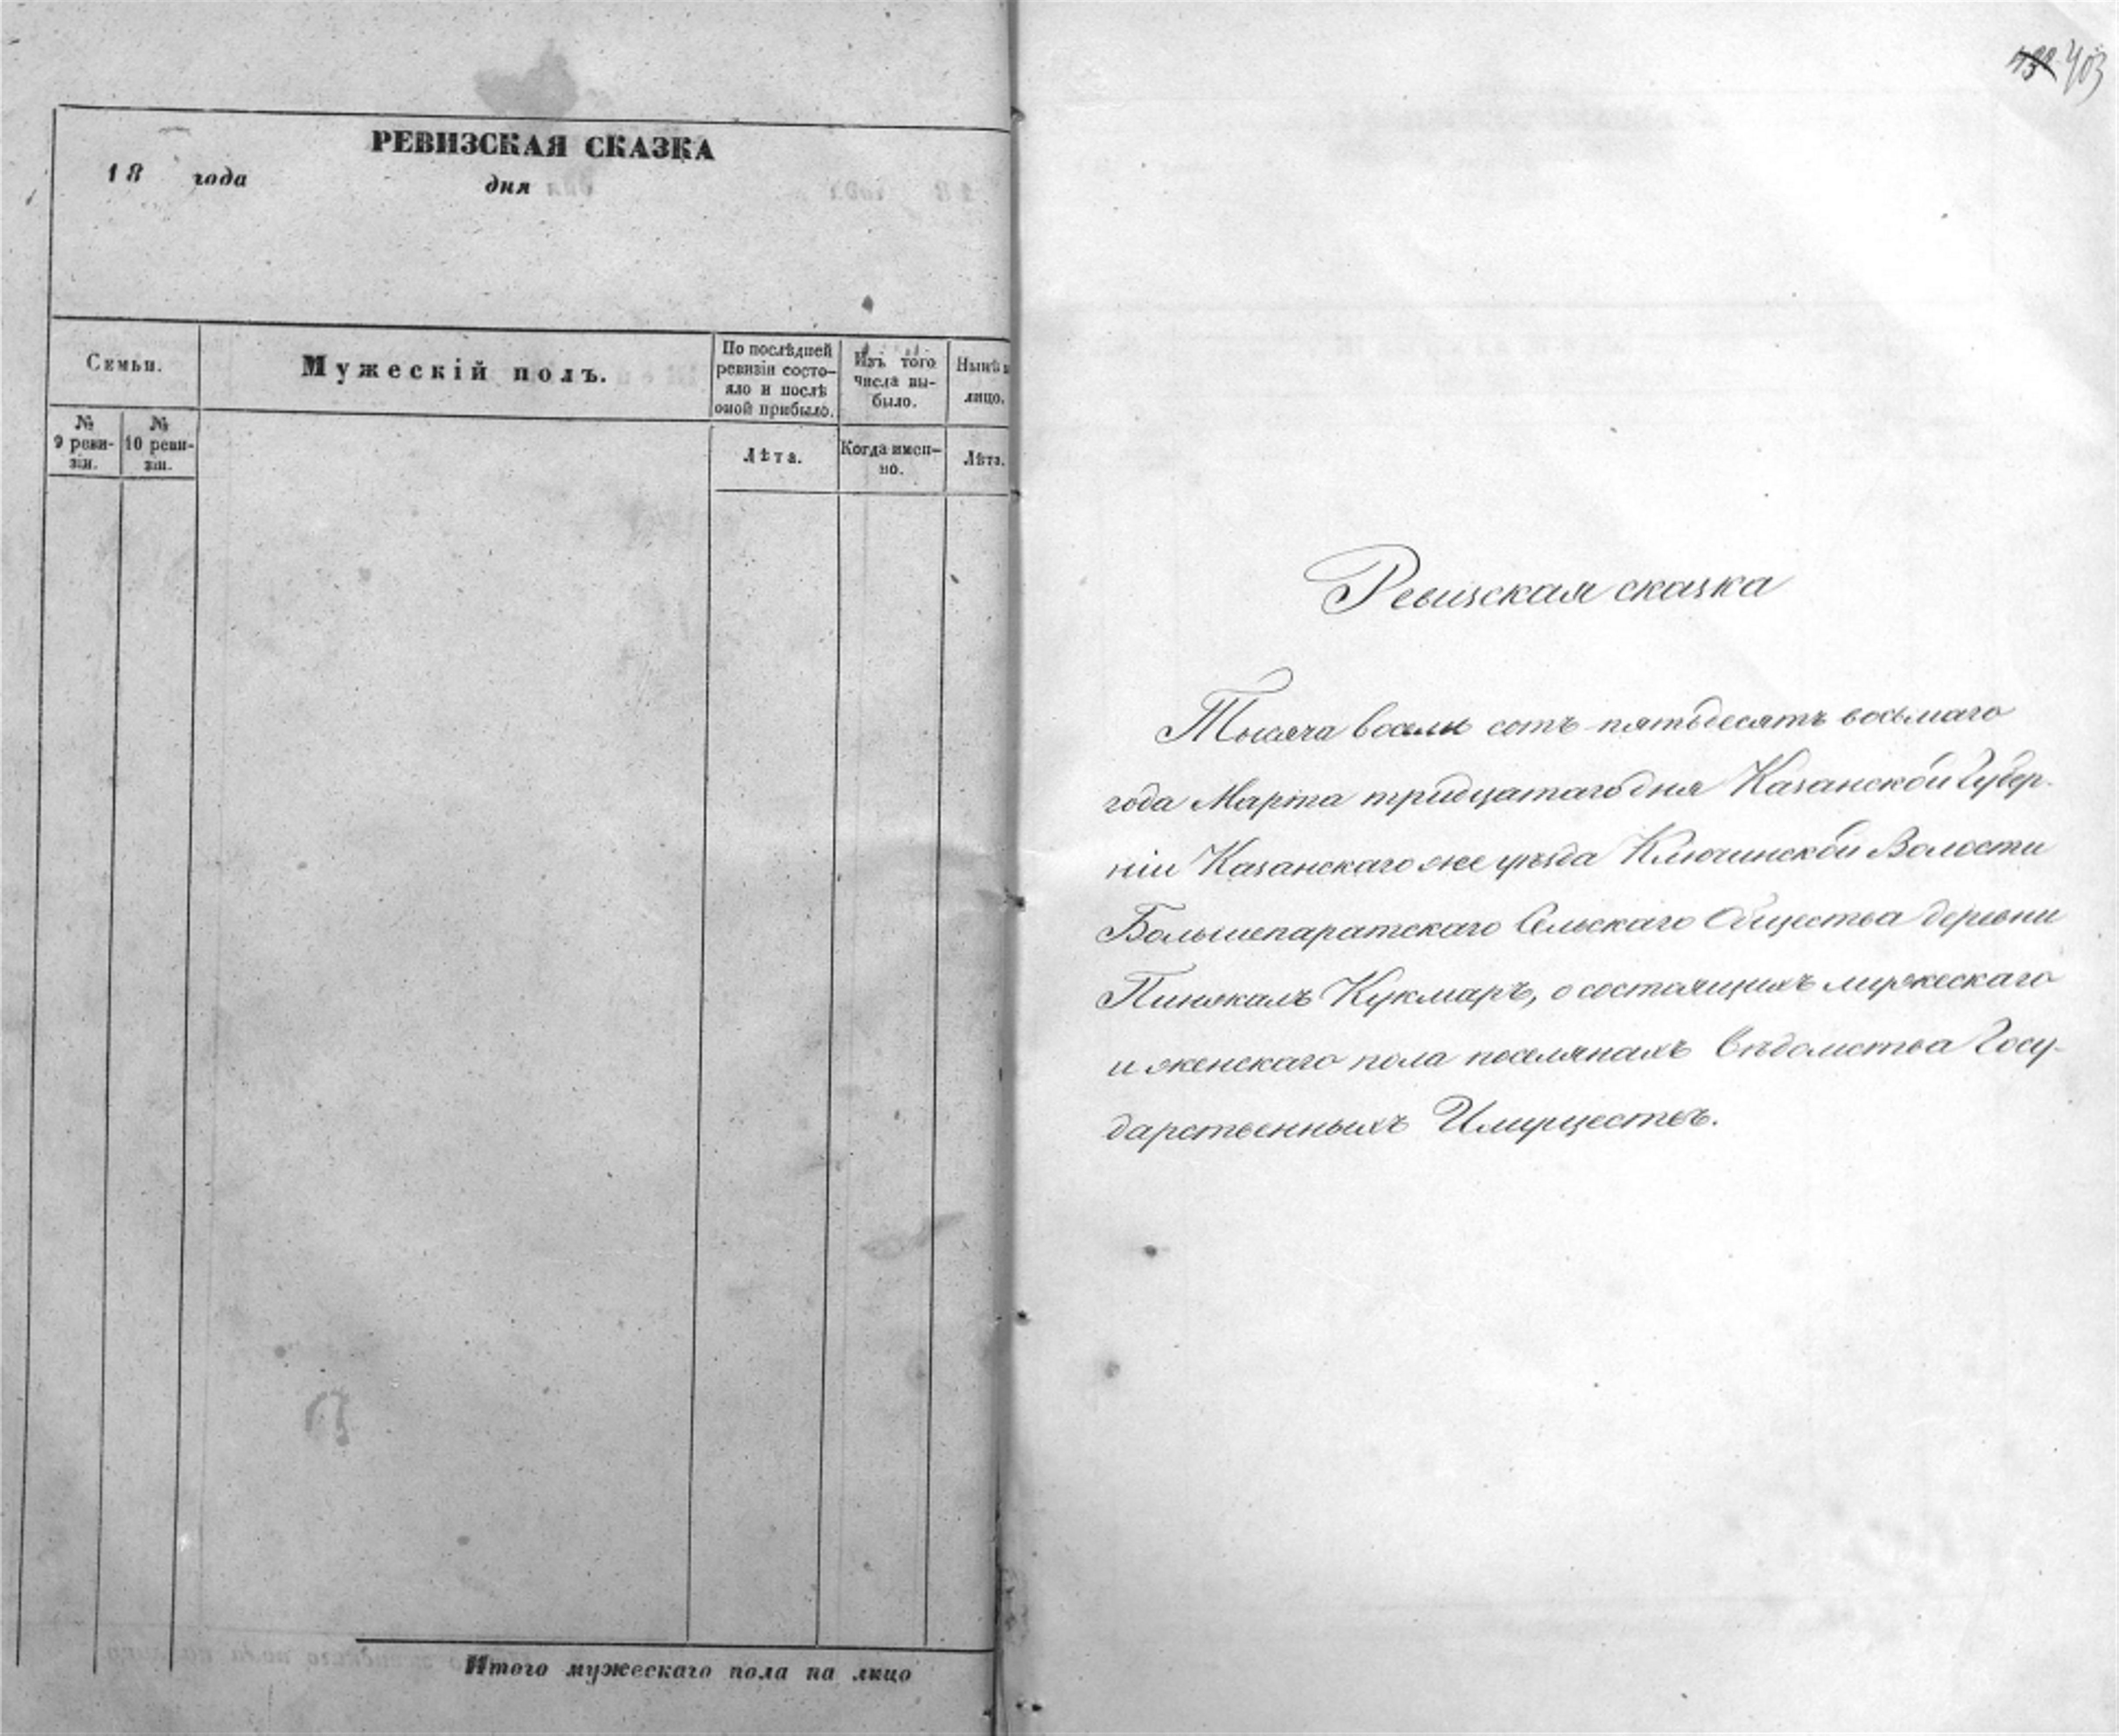 РЕВИЗСКАЯ СКАЗКА
18 года дня
Семьи.
Мужескій полъ.
По послѣдней
ревизіи состо-
яло и послѣ
оной прибыло.
Изъ того
числа вы-
было.
Нынѣ
лицо.
№
9 реви-
зіи.
№
10 реви-
зіи.
Лѣта.
Когда имен-
но.
Лѣта.
Итого мужескаго пола на лицо
403
Ревизская сказка
Тысяча восемь сотъ пятьдесятъ восьмаго
года Марта тридцатаго дня Казанской Губер-
ніи Казанскаго же уѣзда Ключинской Волости
Большепаратскаго Сельскаго Общества деревни
Пинякалъ Кукмаръ, о состоящихъ мужескаго
и женскаго пола поселянахъ Вѣдомства Госу-
дарственныхъ Имуществъ.